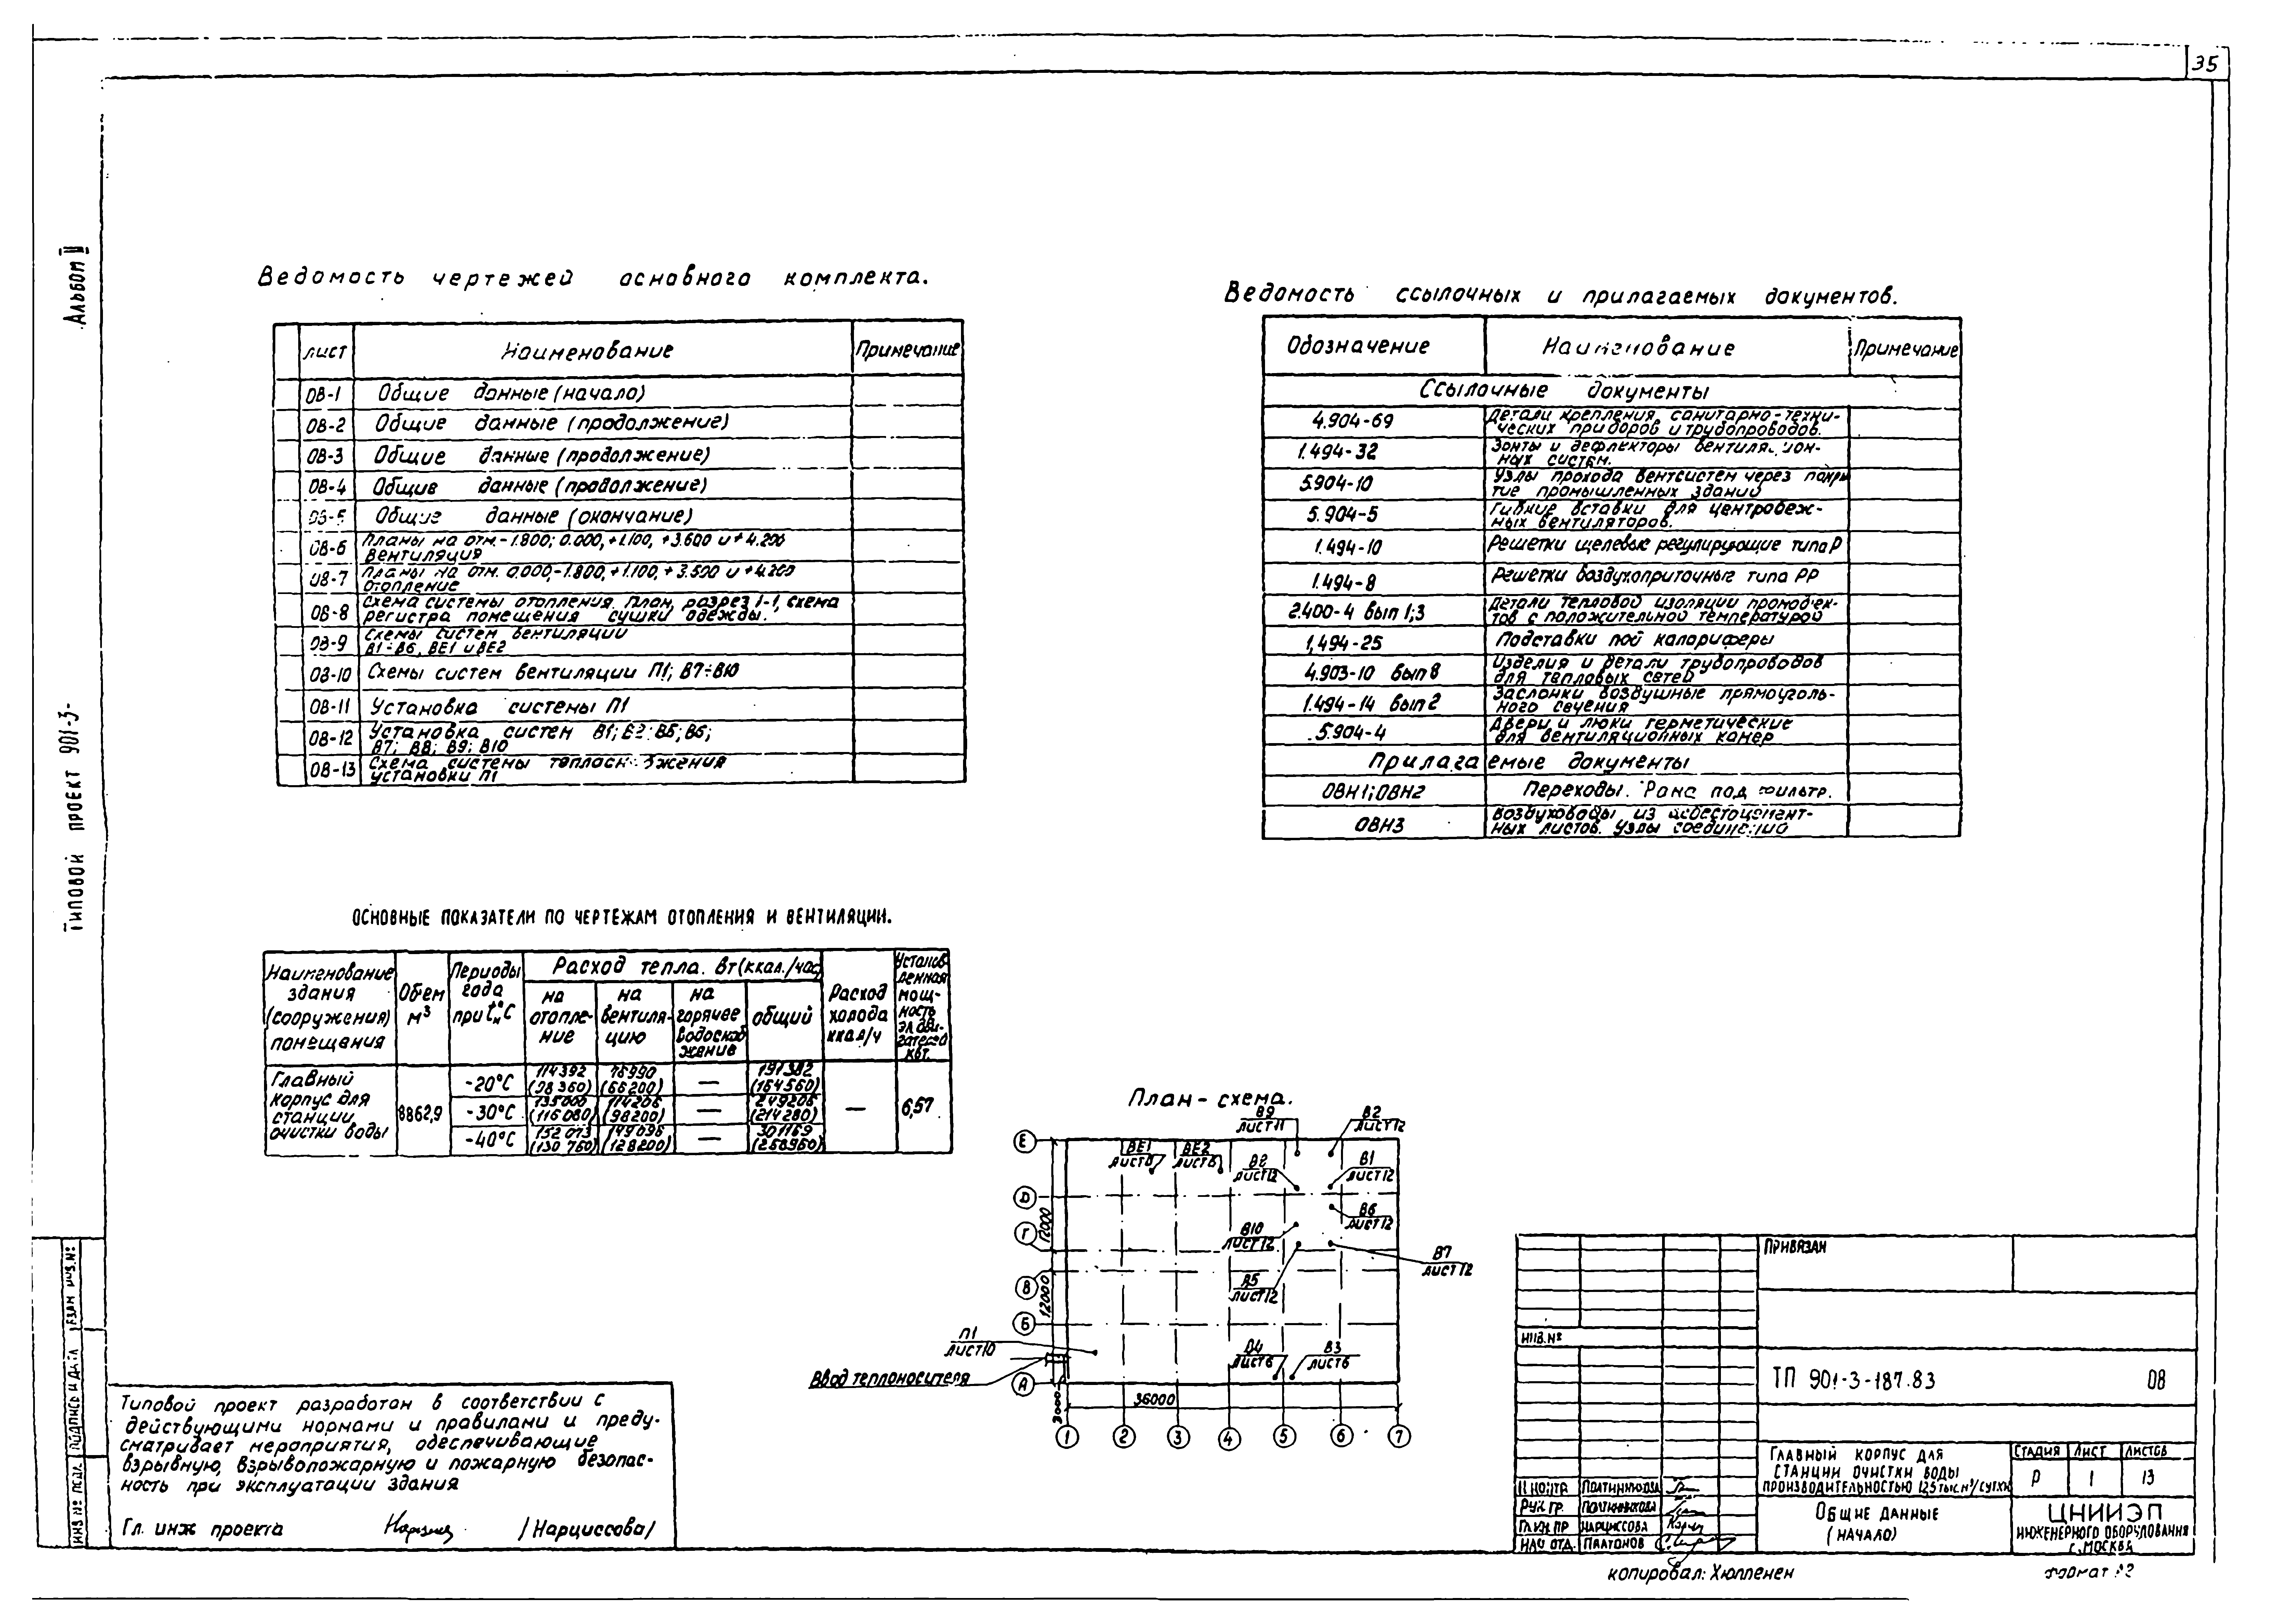 35
Альбом II
Типовой проект 901-3-
Ведомость чертежей основного комплекта.
лист Наименование Примечание
ОВ-1 Общие данные (начало)
ОВ-2 Общие данные (продолжение)
ОВ-3 Общие данные (продолжение)
ОВ-4 Общие данные (продолжение)
ОВ-5 Общие данные (окончание)
ОВ-6 Планы на отм. -1.800; 0.000, +1.100, +3.600 и +4.200
Вентиляция
ОВ-7 Планы на отм. 0.000, -1.800, +1.100, +3.500 и +4.200
Отопление
ОВ-8 Схема системы отопления. План, разрез 1-1, схема
регистра помещения сушки одежды.
ОВ-9 Схемы систем вентиляции
В1÷В6, ВЕ1 и ВЕ2
ОВ-10 Схемы систем вентиляции П1; В7÷В10
ОВ-11 Установка системы П1
ОВ-12 Установка систем В1; В2; В5; В6;
В7; В8; В9; В10
ОВ-13 Схема системы теплоснабжения
установки П1
Ведомость ссылочных и прилагаемых документов.
Обозначение Наименование Примечание
Ссылочные документы
4.904-69 Детали крепления санитарно-техни-
ческих приборов и трубопроводов.
1.494-32 Зонты и дефлекторы вентиляцион-
ных систем.
5.904-10 Узлы прохода вентсистем через покры
тие промышленных зданий
5.904-5 Гибкие вставки для центробеж-
ных вентиляторов.
1.494-10 Решетки щелевые регулирующие типа Р
1.494-8 Решетки воздухоприточные типа РР
2.400-4 вып 1;3 Детали тепловой изоляции промобъек-
тов с положительной температурой
1.494-25 Подставки под калориферы
4.903-10 вып 8 Изделия и детали трубопроводов
для тепловых сетей
1.494-14 вып 2 Заслонки воздушные прямоуголь-
ного сечения
5.904-4 Двери и люки герметические
для вентиляционных камер
Прилагаемые документы
ОВН1; ОВН2 Переходы. Рама под фильтр.
ОВН3 Воздуховоды из асбестоцемент-
ных листов. Узлы соединений
Основные показатели по чертежам отопления и вентиляции.
Наименование здания (сооружения) помещения
Объем м³
Периоды года при tн°С
Расход тепла. Вт (ккал./час)
на отопле-ние
на вентиля-цию
на горячее водоснаб жение
общий
Расход холода ккал/ч
Установ-ленная мощ-ность эл.дви-гателей квт.
Главный корпус для станции очистки воды 8862,9
-20°С 114392 (98360) 76990 (66200) — (164560)
-30°С 135000 (116080) 114206 (98200) — 249206 (214280)
-40°С 152073 (130760) 149096 (128200) — 301169 (258960)
— 6,57
План-схема.
В9 лист 11
В2 лист 12
ВЕ1 лист 8
ВЕ2 лист 8
лист 12
В1 лист 12
В6 лист 12
В10 лист 12
В7 лист 12
В5 лист 12
П1 лист 10
лист 6
В3 лист 6
Ввод теплоносителя
Е
Д
Г
В
Б
А
12000
12000
3000
36000
1 2 3 4 5 6 7
Типовой проект разработан в соответствии с
действующими нормами и правилами и преду-
сматривает мероприятия, обеспечивающие
взрывную, взрывопожарную и пожарную безопас-
ность при эксплуатации здания
Гл. инж проекта /Нарциссова/
Взам инв. №
Подпись и дата
Инв № подл
Привязан
Инв. №
ТП 901-3-187.83 ОВ
Главный корпус для
станции очистки воды
производительностью 12,5 тыс.м³/сутки
Стадия Лист Листов
Р 1 13
Общие данные
(начало)
ЦНИИЭП
инженерного оборудования
г. Москва
Н контр Полтинникова
Рук гр. Полтинникова
Гл инж пр Нарциссова
Нач отд. Платонов
копировал: Хюппенен
формат А2